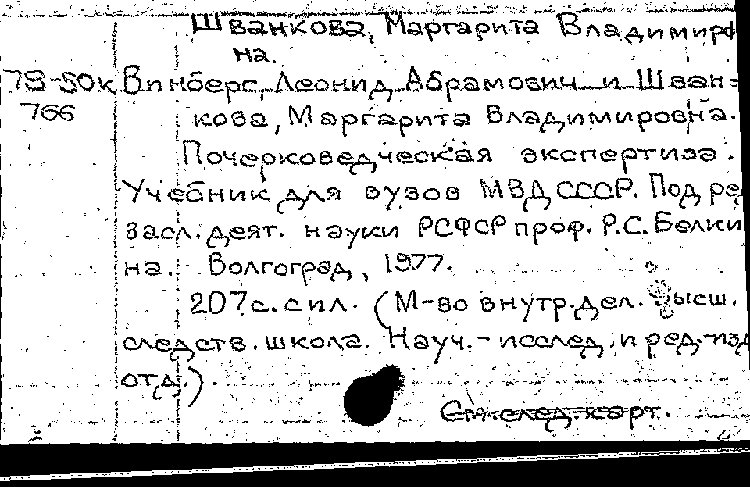 Шванкова, Маргарита Владимиров
на.
78-50к Винберг, Леонид Абрамович и Шван-
766 кова, Маргарита Владимировна.
Почерковедческая экспертиза.
Учебник для вузов МВД СССР. Под ре
засл. деят. науки РСФСР проф. Р.С. Белки
на. Волгоград, 1977.
207с. с ил. (М-во внутр. дел. Высш.
следств. школа. Науч.-исслед. и ред.-изд
отд.).
См. след. карт.